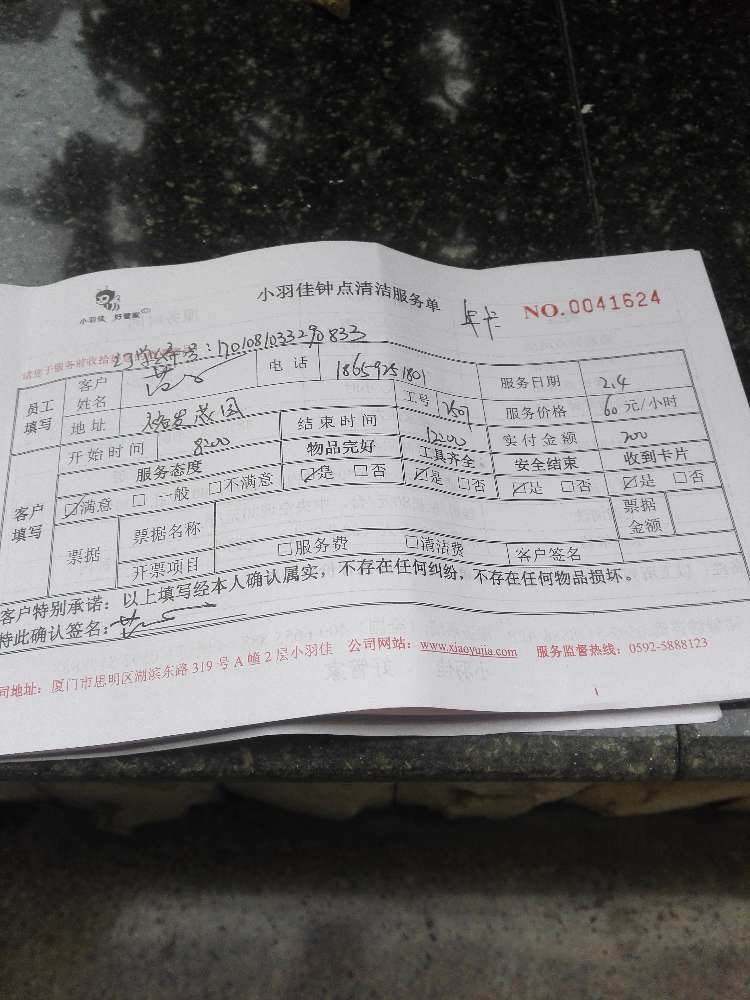 小羽佳 好管家
小羽佳钟点清洁服务单
年卡
NO.0041624
请您于服务前收拾
订单编号:1701081033290833
员工填写
客户姓名
电话 18659251801
服务日期 2.4
地址
工号 1250
服务价格 60 元/小时
开始时间 8:00
结束时间 12:00
实付金额 200
客户填写
服务态度 物品完好 工具齐全 安全结束 收到卡片
☑满意 □ 一般 □不满意 ☑是 □否 ☑是 □否 ☑是 □否 ☑是 □否
票据
票据名称
票据金额
开票项目 □服务费 □清洁费 客户签名
客户特别承诺:以上填写经本人确认属实,不存在任何纠纷,不存在任何物品损坏。
特此确认签名:
司地址:厦门市思明区湖滨东路 319 号 A 幢 2 层小羽佳 公司网站:www.xiaoyujia.com 服务监督热线:0592-5888123